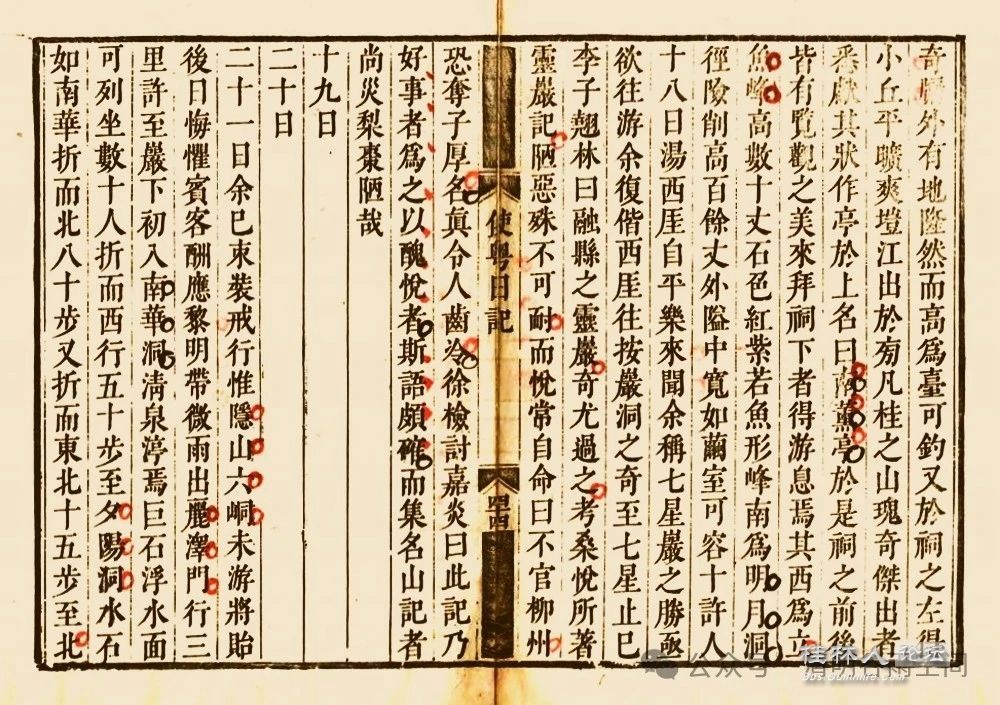 奇勝外有地隆然而高爲臺可釣又於祠之左得
小丘平曠爽塏江出於旁凡桂之山瑰奇傑出者
悉獻其狀作亭於上名曰南薰亭於是祠之前後
皆有覽觀之美來拜祠下者得游息焉其西爲立
魚峰高數十丈石色紅紫若魚形峰南爲明月洞
徑險削高百餘丈外隘中寬如繭室可容十許人
十八日湯西厓自平樂來聞余稱七星巖之勝亟
欲往游余復偕西厓往按巖洞之奇至七星止已
李子翹林曰融縣之靈巖奇尤過之考桑悅所著
靈巖記陋惡殊不可耐而悅常自命曰不官柳州
使粵日記
恐奪子厚名眞令人齒冷徐檢討嘉炎曰此記乃
好事者爲之以醜悅者斯語頗確而集名山記者
尚災梨棗陋哉
十九日
二十日
二十一日余已束裝戒行惟隱山六峒未游將貽
後日悔懼賓客酬應黎明帶微雨出麗澤門行三
里許至巖下初入南華洞淸泉渟焉巨石浮水面
可列坐數十人折而西行五十步至夕陽洞水石
如南華折而北八十步又折而東北十五步至北
桂林人论坛
公众号